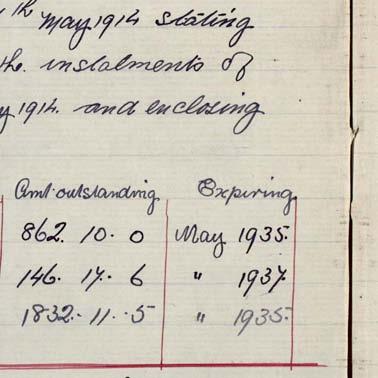 th May 1914 stating
the instalments of
y 1914. and enclosing
Amt outstanding Expiring
862. 10. 0 May 1935.
146. 17. 6 " 1937.
1832. 11. 5 " 1935.